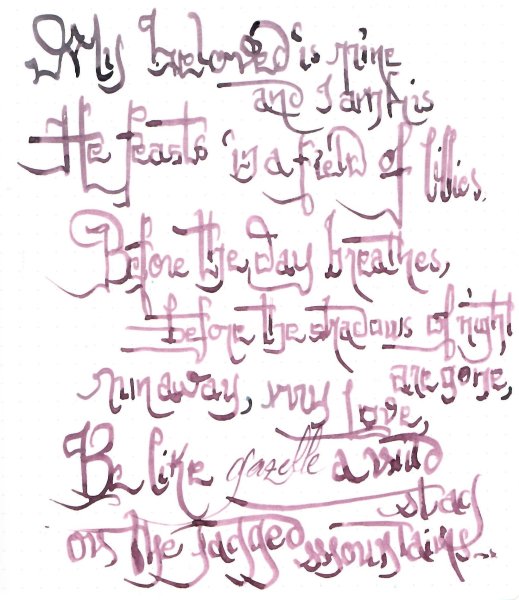 My beloved is mine
and I am his
He feasts in a field of lilies.
Before the day breathes,
before the shadows of night
are gone,
run away, my love,
Be like gazelle a wild
stag
on the jagged mountains...